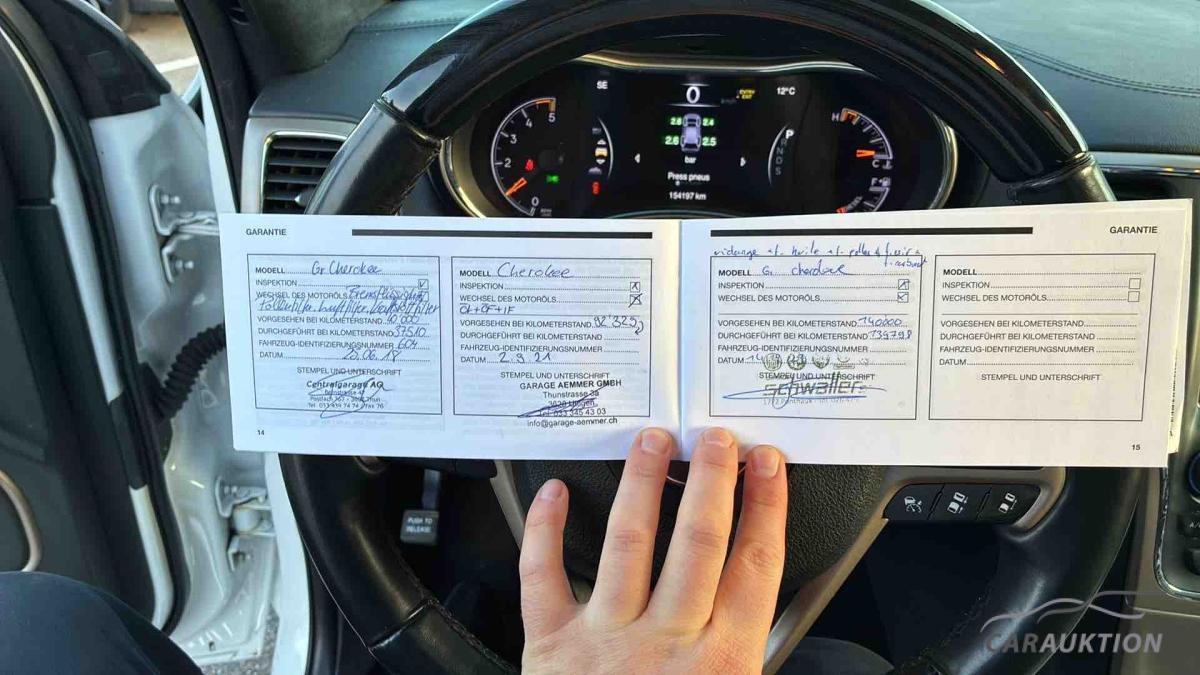 SE
0
ENTRY
EXIT
12°C
2.6 2.4
2.6 2.5
bar
Press pneus
154197 km
5
4
3
2
0
P
R
N
D
S
H
C
F
GARANTIE
MODELL Gr Cherokee
INSPEKTION
WECHSEL DES MOTORÖLS Bremsflüssigkeit
Pollenfilter, Luftfilter, Kraftstofffilter
VORGESEHEN BEI KILOMETERSTAND 40'000
DURCHGEFÜHRT BEI KILOMETERSTAND 37510
FAHRZEUG-IDENTIFIZIERUNGSNUMMER 604
DATUM 20.06.18
STEMPEL UND UNTERSCHRIFT
Centralgarage AG
14
MODELL Cherokee
INSPEKTION
WECHSEL DES MOTORÖLS
ÖL+ÖF+IF
VORGESEHEN BEI KILOMETERSTAND 92'329
DURCHGEFÜHRT BEI KILOMETERSTAND
FAHRZEUG-IDENTIFIZIERUNGSNUMMER
DATUM 2.9.21
STEMPEL UND UNTERSCHRIFT
GARAGE AEMMER GMBH
Thunstrasse 3a
Tel 033 345 43 03
info@garage-aemmer.ch
GARANTIE
vidange et huile et
MODELL Gr cherokee
INSPEKTION
WECHSEL DES MOTORÖLS
VORGESEHEN BEI KILOMETERSTAND 140000
DURCHGEFÜHRT BEI KILOMETERSTAND 139798
FAHRZEUG-IDENTIFIZIERUNGSNUMMER
DATUM
STEMPEL UND UNTERSCHRIFT
schwaller
MODELL
INSPEKTION
WECHSEL DES MOTORÖLS
VORGESEHEN BEI KILOMETERSTAND
DURCHGEFÜHRT BEI KILOMETERSTAND
FAHRZEUG-IDENTIFIZIERUNGSNUMMER
DATUM
STEMPEL UND UNTERSCHRIFT
15
PUSH TO
RELEASE
CARAUKTION